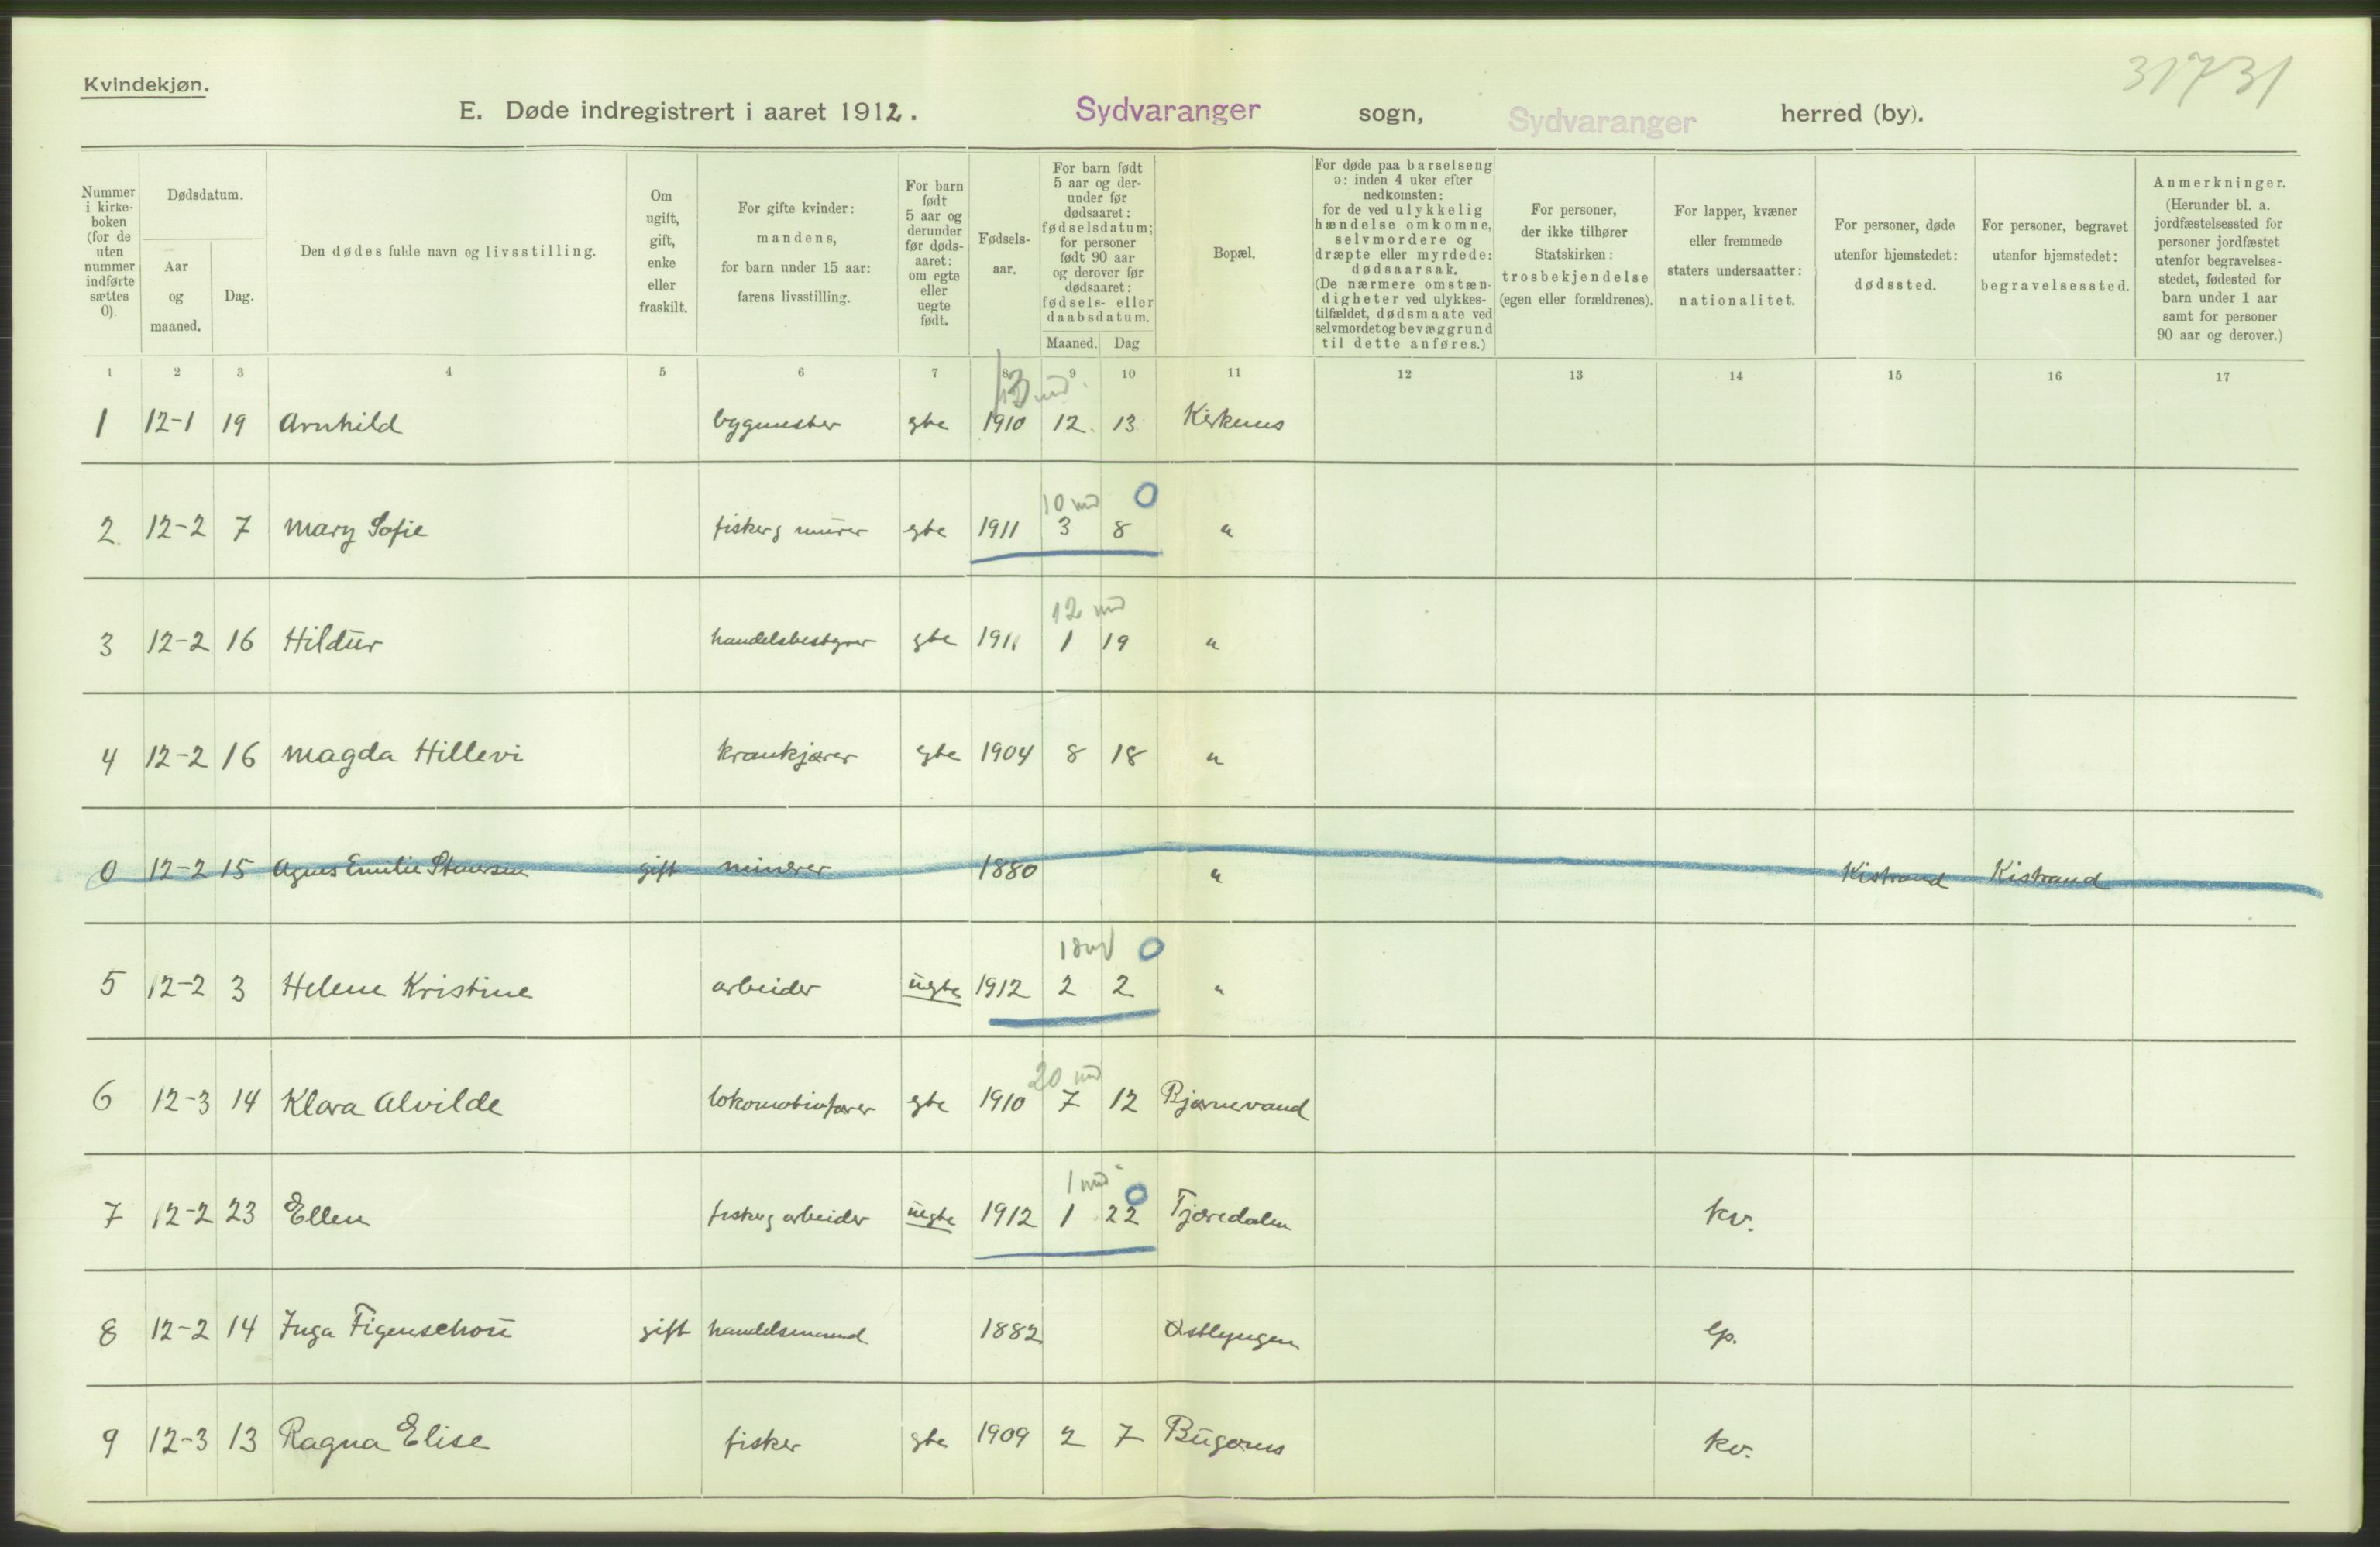 Kvindekjøn.
31731
E. Døde indregistrert i aaret 1912. Sydvaranger sogn, Sydvaranger herred (by).
Nummer i kirke-boken (for de uten nummer indførte sættes 0).
Dødsdatum.
Aar og maaned.
Dag.
Den dødes fulde navn og livsstilling.
Om ugift, gift, enke eller fraskilt.
For gifte kvinder: mandens, for barn under 15 aar: farens livsstilling.
For barn født 5 aar og derunder før døds-aaret: om egte eller uegte født.
Fødsels-aar.
For barn født 5 aar og der-under før dødsaaret: fødselsdatum; for personer født 90 aar og derover før dødsaaret: fødsels- eller daabsdatum.
Maaned. Dag
Bopæl.
For døde paa barselseng ɔ: inden 4 uker efter nedkomsten: for de ved ulykkelig hændelse omkomne, selvmordere og dræpte eller myrdede: dødsaarsak. (De nærmere omstæn-digheter ved ulykkes-tilfældet, dødsmaate ved selvmordet og bevæggrund til dette anføres.)
For personer, der ikke tilhører Statskirken: trosbekjendelse (egen eller forældrenes).
For lapper, kvæner eller fremmede staters undersaatter: nationalitet.
For personer, døde utenfor hjemstedet: dødssted.
For personer, begravet utenfor hjemstedet: begravelsessted.
Anmerkninger. (Herunder bl. a. jordfæstelsessted for personer jordfæstet utenfor begravelses-stedet, fødested for barn under 1 aar samt for personer 90 aar og derover.)
1 2 3 4 5 6 7 8 9 10 11 12 13 14 15 16 17
13 md.
1 12-1 19 Arnhild bygmester gte 1910 12 13 Kirkenes
10 md 0
2 12-2 7 Mary Sofie fisker g murer egte 1911 3 8 "
12 md
3 12-2 16 Hildur handelsbestyrer gte 1911 1 19 "
4 12-2 16 Magda Hillevi krankjører egte 1904 8 18 "
0 12-2 15 Agnes Emilie gift minerer 1880 " Kistrand Kistrand
0
5 12-2 3 Helene Kristine arbeider uegte 1912 2 2 "
20 md
6 12-3 14 Klara Alvilde lokomotivfører egte 1910 7 12 Bjørnevand
1 md 0
7 12-2 23 Ellen fisker g arbeider uegte 1912 1 22 Tjæredalen kv.
8 12-2 14 Inga Figenschou gift handelsmand 1882 lp.
9 12-3 13 Ragna Elise fisker gte 1909 2 7 Bugønes kv.